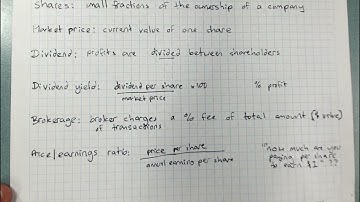 Shares: small fractions of the ownership of a company
Market price: current value of one share
Dividend: profits are divided between shareholders
Dividend yield: dividend per share × 100 % profit
market price
Brokerage: broker charges a % fee of total amount ($ value)
of transactions
Price/earnings ratio: price per share
annual earning per share
"how much are you
paying per share
to earn $1" ??